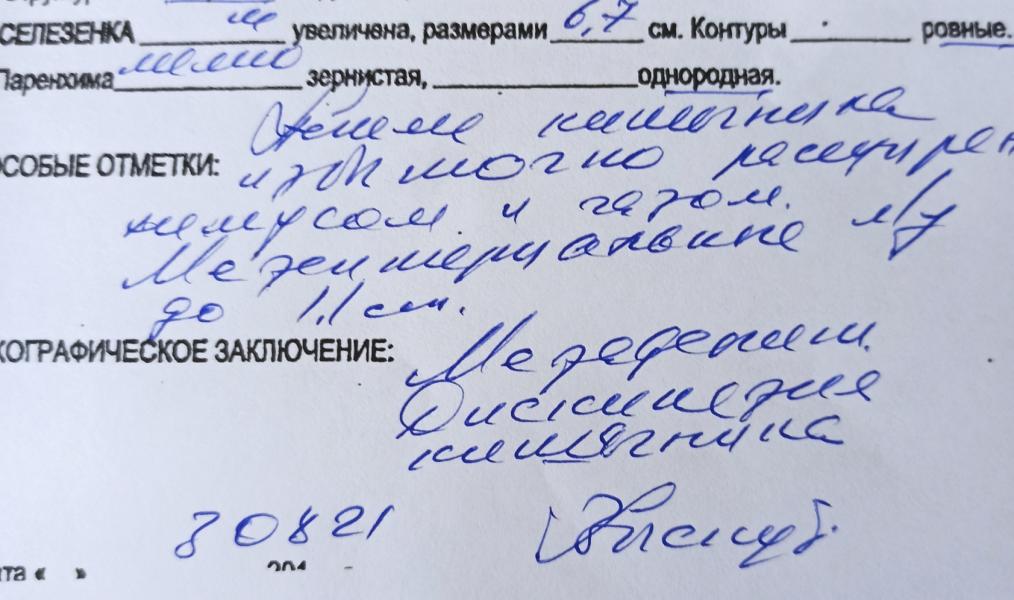 СЕЛЕЗЕНКА не увеличена, размерами 6,7 см. Контуры ровные.
Паренхима мелко зернистая, однородная.
Петли кишечника
ОСОБЫЕ ОТМЕТКИ: избыточно расширен
химусом и газом.
Мезентериальные л/у
до 1,1 см.
ХОГРАФИЧЕСКОЕ ЗАКЛЮЧЕНИЕ: Мезаденит.
Дискинезия
кишечника
30821
та « » 201